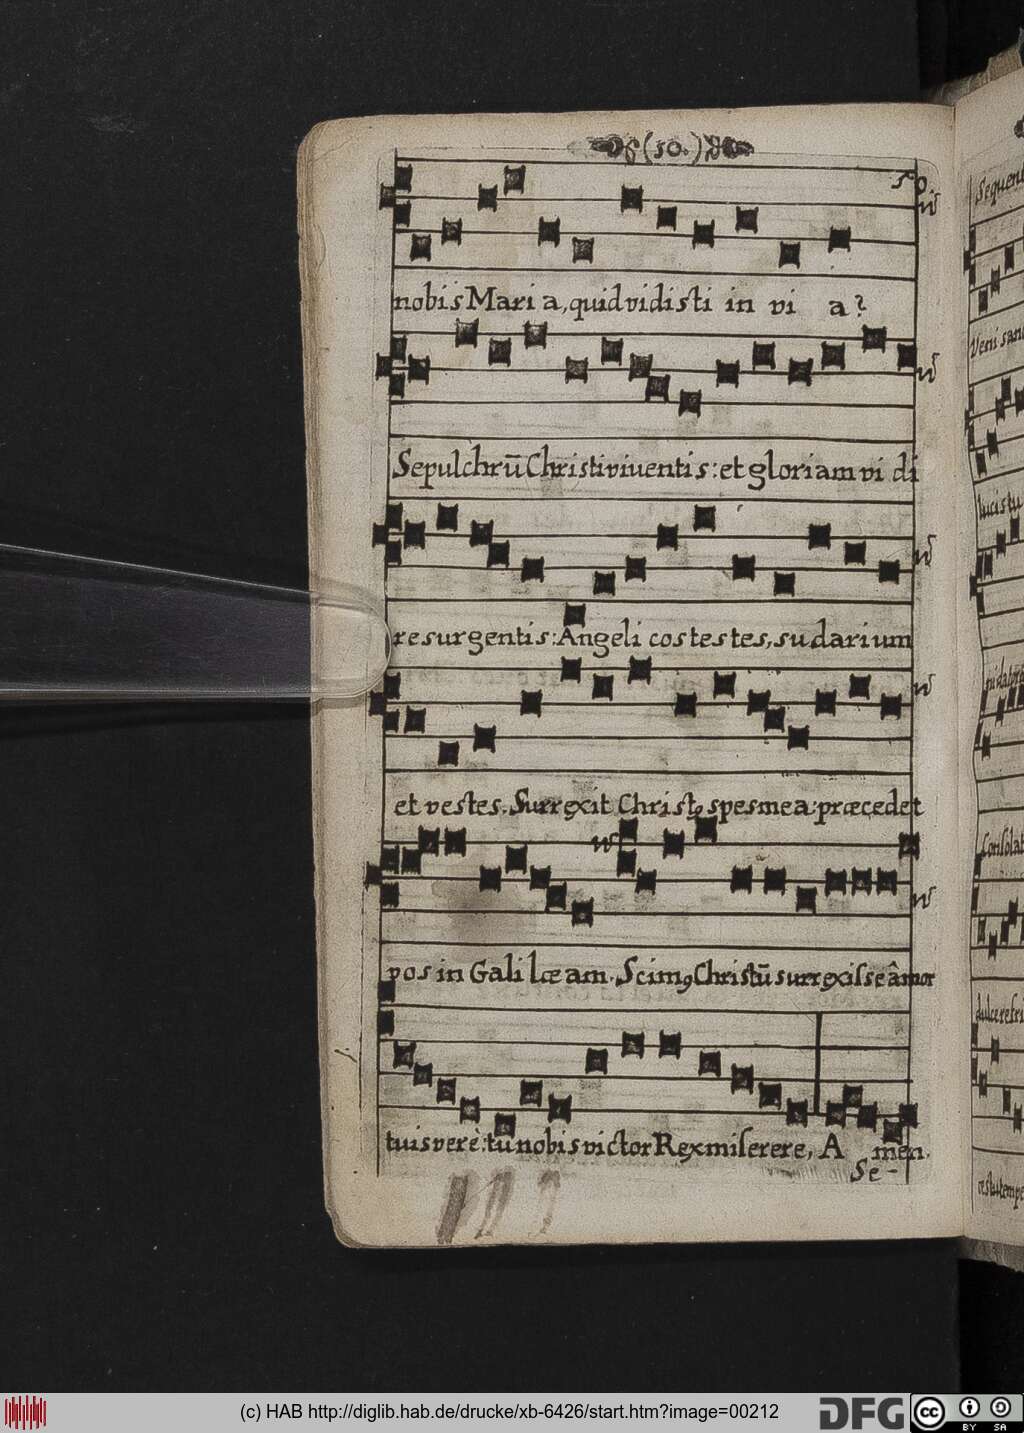 (50.)
50.
nobis Maria, quid vidisti in vi a?
Sepulchrū Christi viventis: et gloriam vi di
resurgentis: Angeli cos testes, sudarium
et vestes. Surrexit Christꝯ spes mea: præcedet
vos in Galilæam. Scimꝯ Christū surrexisse â mor
tuis verè: tu nobis victor Rex miserere, A men.
Se-
Sequent
Veni san
lucis tu
Consolat
dulce refri
(c) HAB http://diglib.hab.de/drucke/xb-6426/start.htm?image=00212
DFG
cc
BY SA